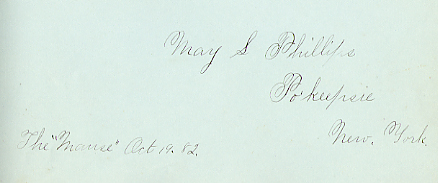 May S Phillips
Po'keepsie
New. York.
The "Manse" Oct 19. 82.